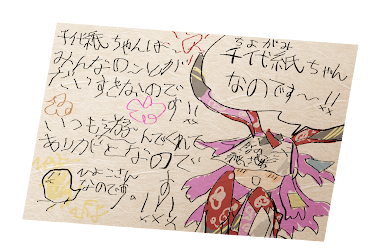 千代紙ちゃんは
みんなのことが
だいすきなのです!!
いつも遊んでくれて
ありがとなのです!!!
ひよこさん
なのです。
ちよがみ
千代紙ちゃん
なのです〜!!